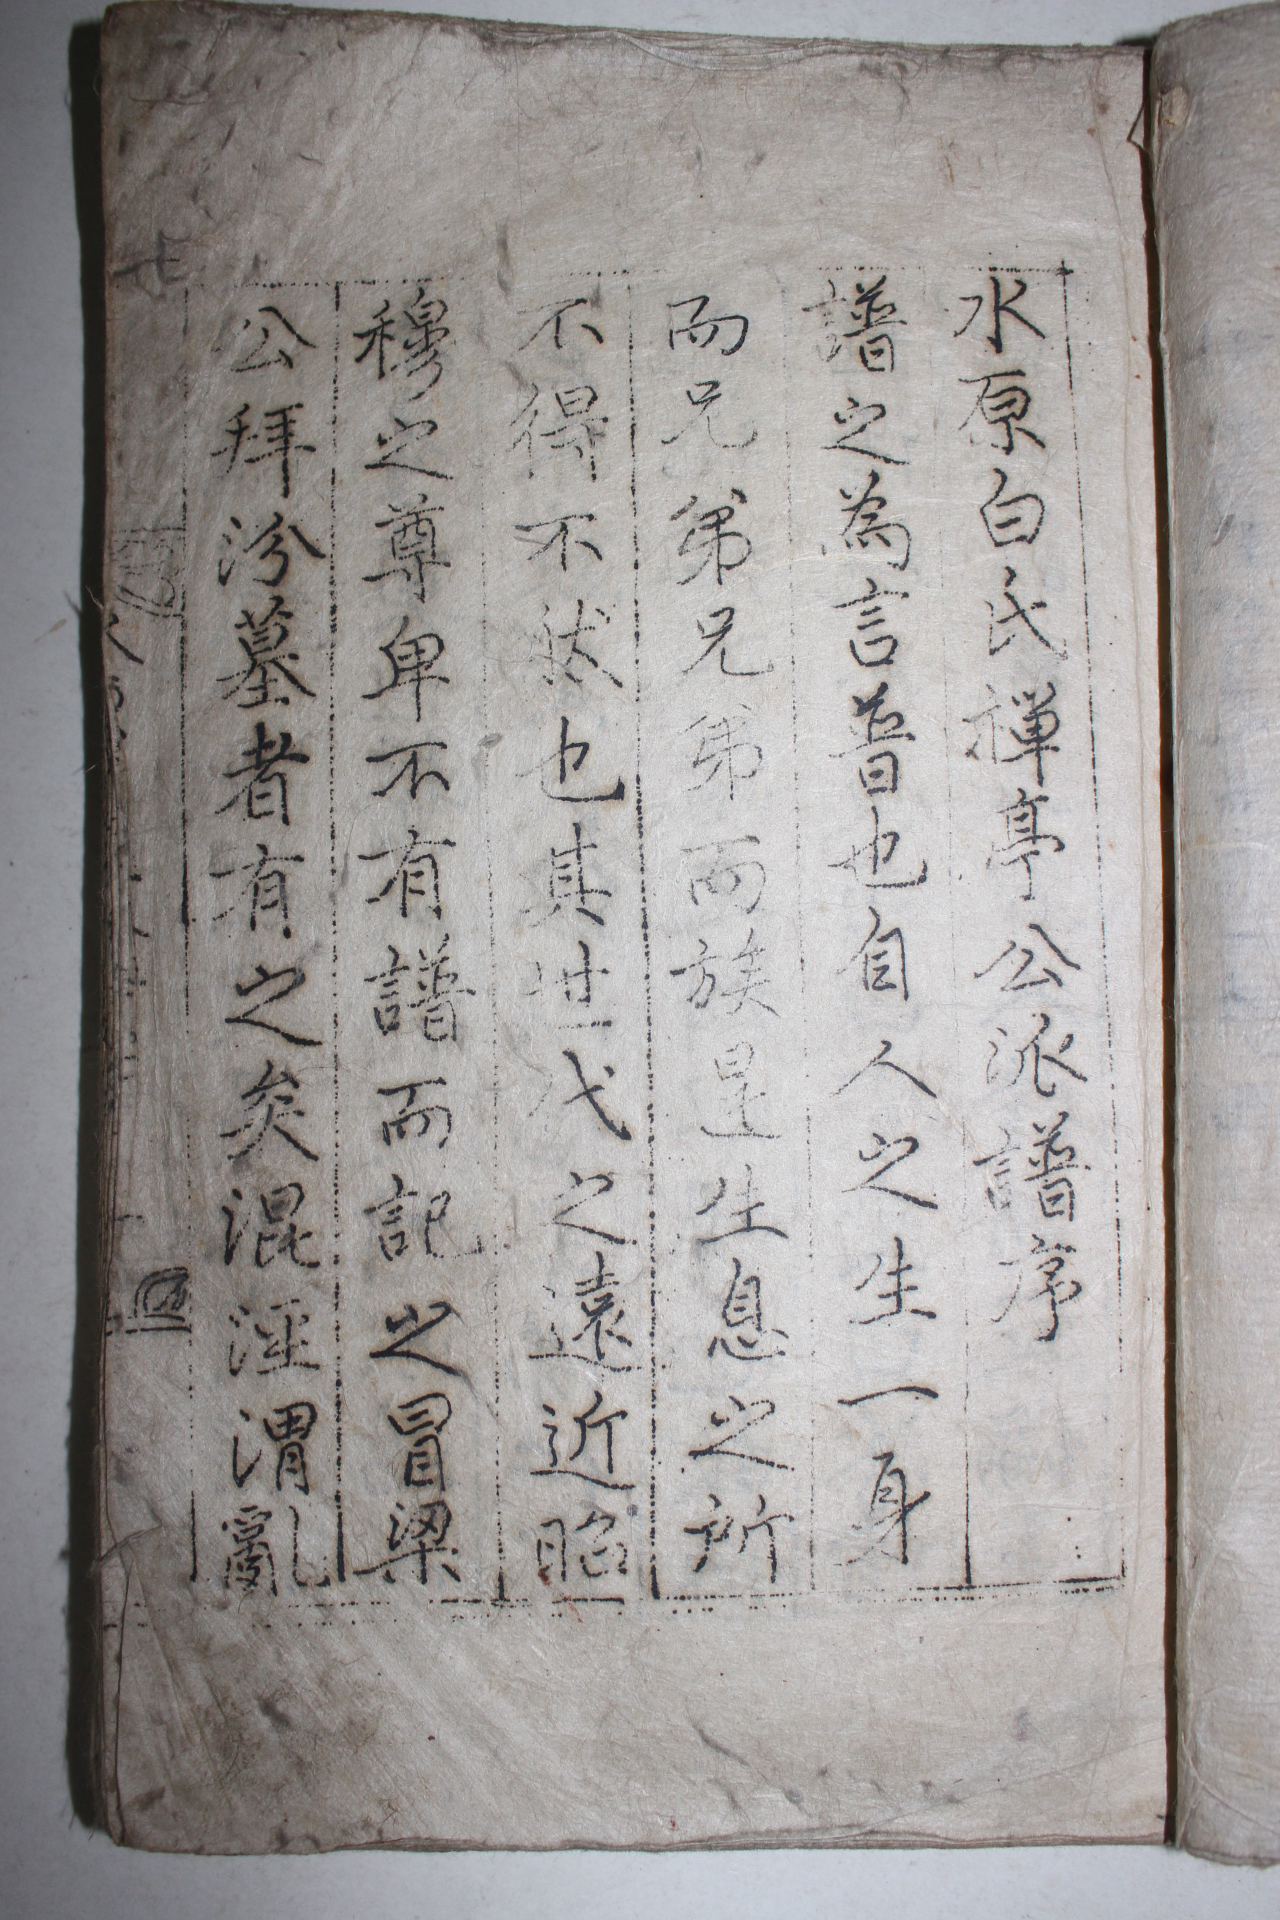 水原白氏禪亭公派譜序
譜之為言普也自人之生一身
而兄弟兄弟而族是生息之所
不得不狀也其世代之遠近昭
穆之尊卑不有譜而記之冒梁
公拜汾墓者有之矣混涇渭亂